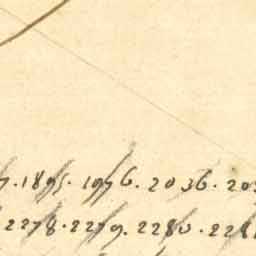 7. 1895. 1976. 2036. 203
2278. 2279. 2280. 228